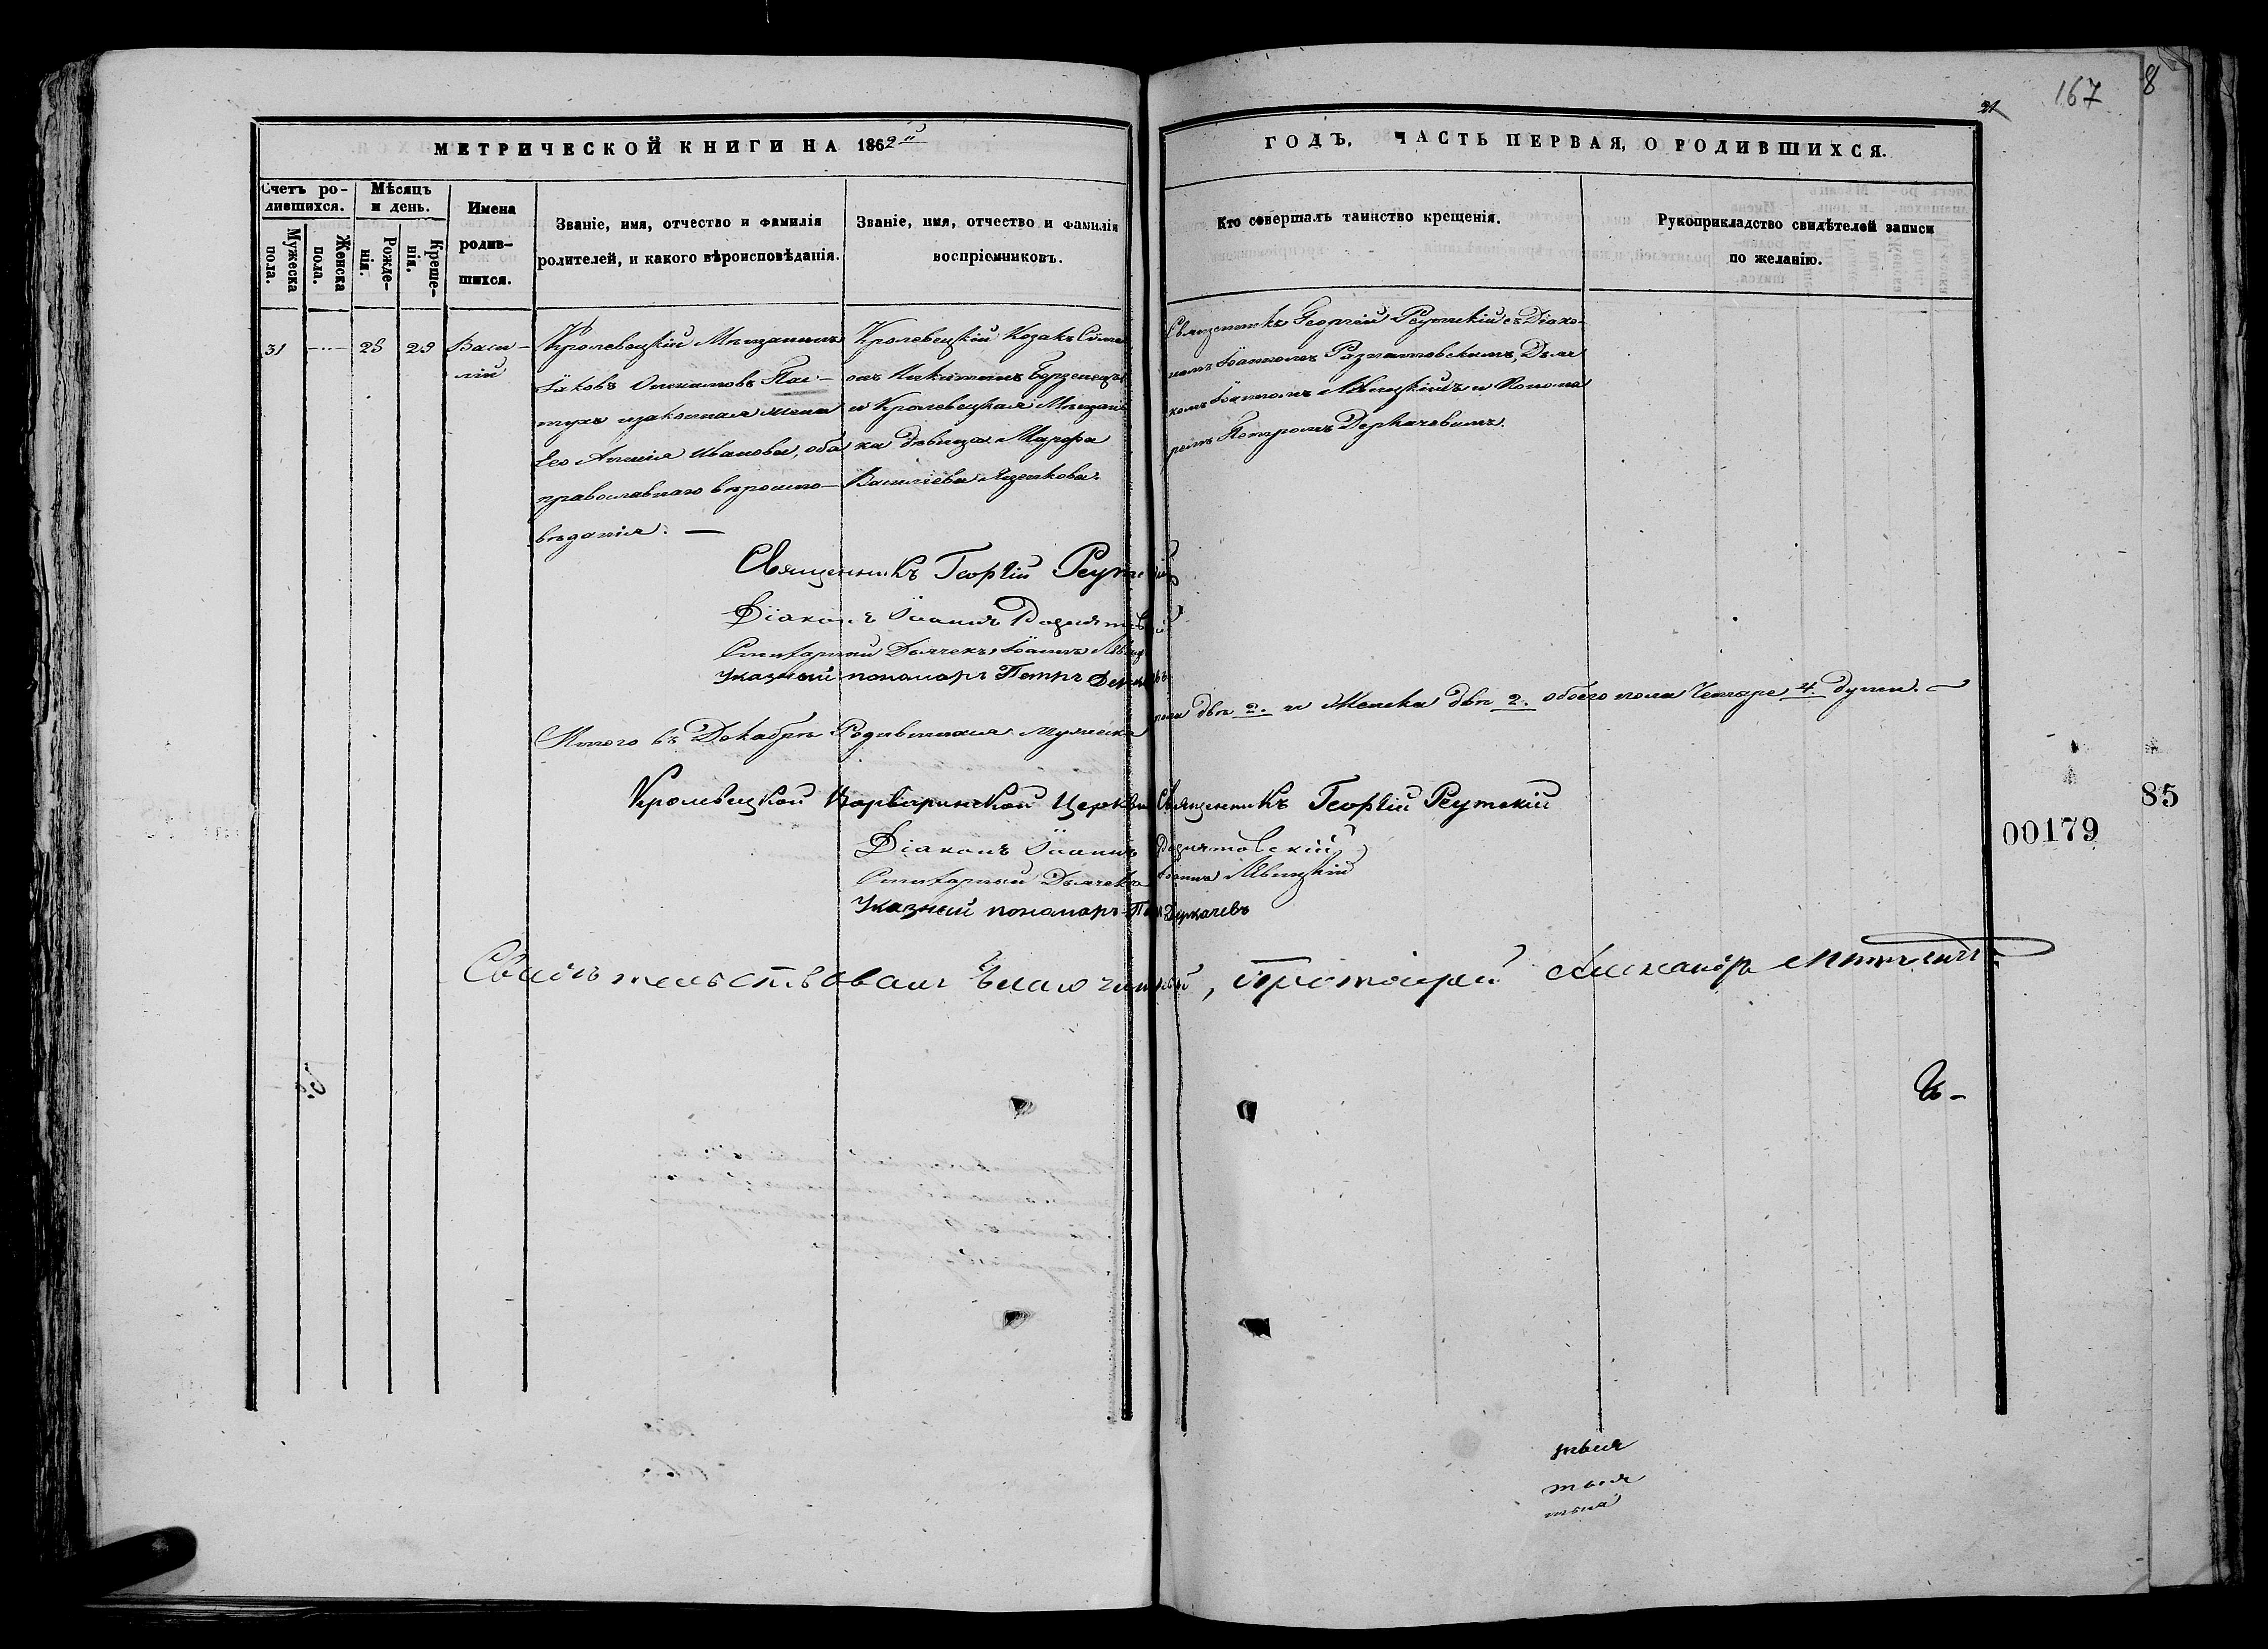 167
8
21
МЕТРИЧЕСКОЙ КНИГИ НА 1862й
ГОДЪ. ЧАСТЬ ПЕРВАЯ, О РОДИВШИХСЯ.
Счетъ ро-
дившихся.
Мужеска
пола.
Женска
пола.
Мѣсяцъ
и день.
Рожде-
нія.
Креще-
нія.
Имена
родив-
шихся.
Званіе, имя, отчество и фамилія
родителей, и какого вѣроисповѣданія.
Званіе, имя, отчество и фамилія
воспріемниковъ.
Кто совершалъ таинство крещенія.
Рукоприкладство свидѣтелей записи
по желанію.
31
29
Васи-
лій
Кролевецкій Мѣщанинъ
Іаковъ Пас-
тухъ изаконная жена
Его Иванова, оба
православнаго вѣроиспо-
вѣданія. —
Кролевецкій Козакъ Симе
онъ Никитинъ
и Кролевецкая Мѣщан
ка дѣвица Марфа
Васильева
Священникъ Георгій Реутскій съ Діако-
номъ Іоанномъ Дьяч
комъ Іоанномъ Лѣвицкимъ и Понома
ремъ Петромъ Деркачевымъ.
Священникъ Георгій
Діаконъ Іоаннъ
Дьячекъ Іоаннъ
Указный пономарь Петръ
Итого въ Декабрѣ Родившихся Мужеска пола двѣ 2. и Женска двѣ 2. обоего пола Четыре 4. души. —
Кролевецкой Варваринской Церкви Священникъ Георгій Реутскій
Діаконъ Іоаннъ
Дьячекъ Іоаннъ Лѣвицкій
Указный пономарь Деркачевъ
Свидѣтельствовалъ Благочинный, Протоіерей Александръ
85
00179